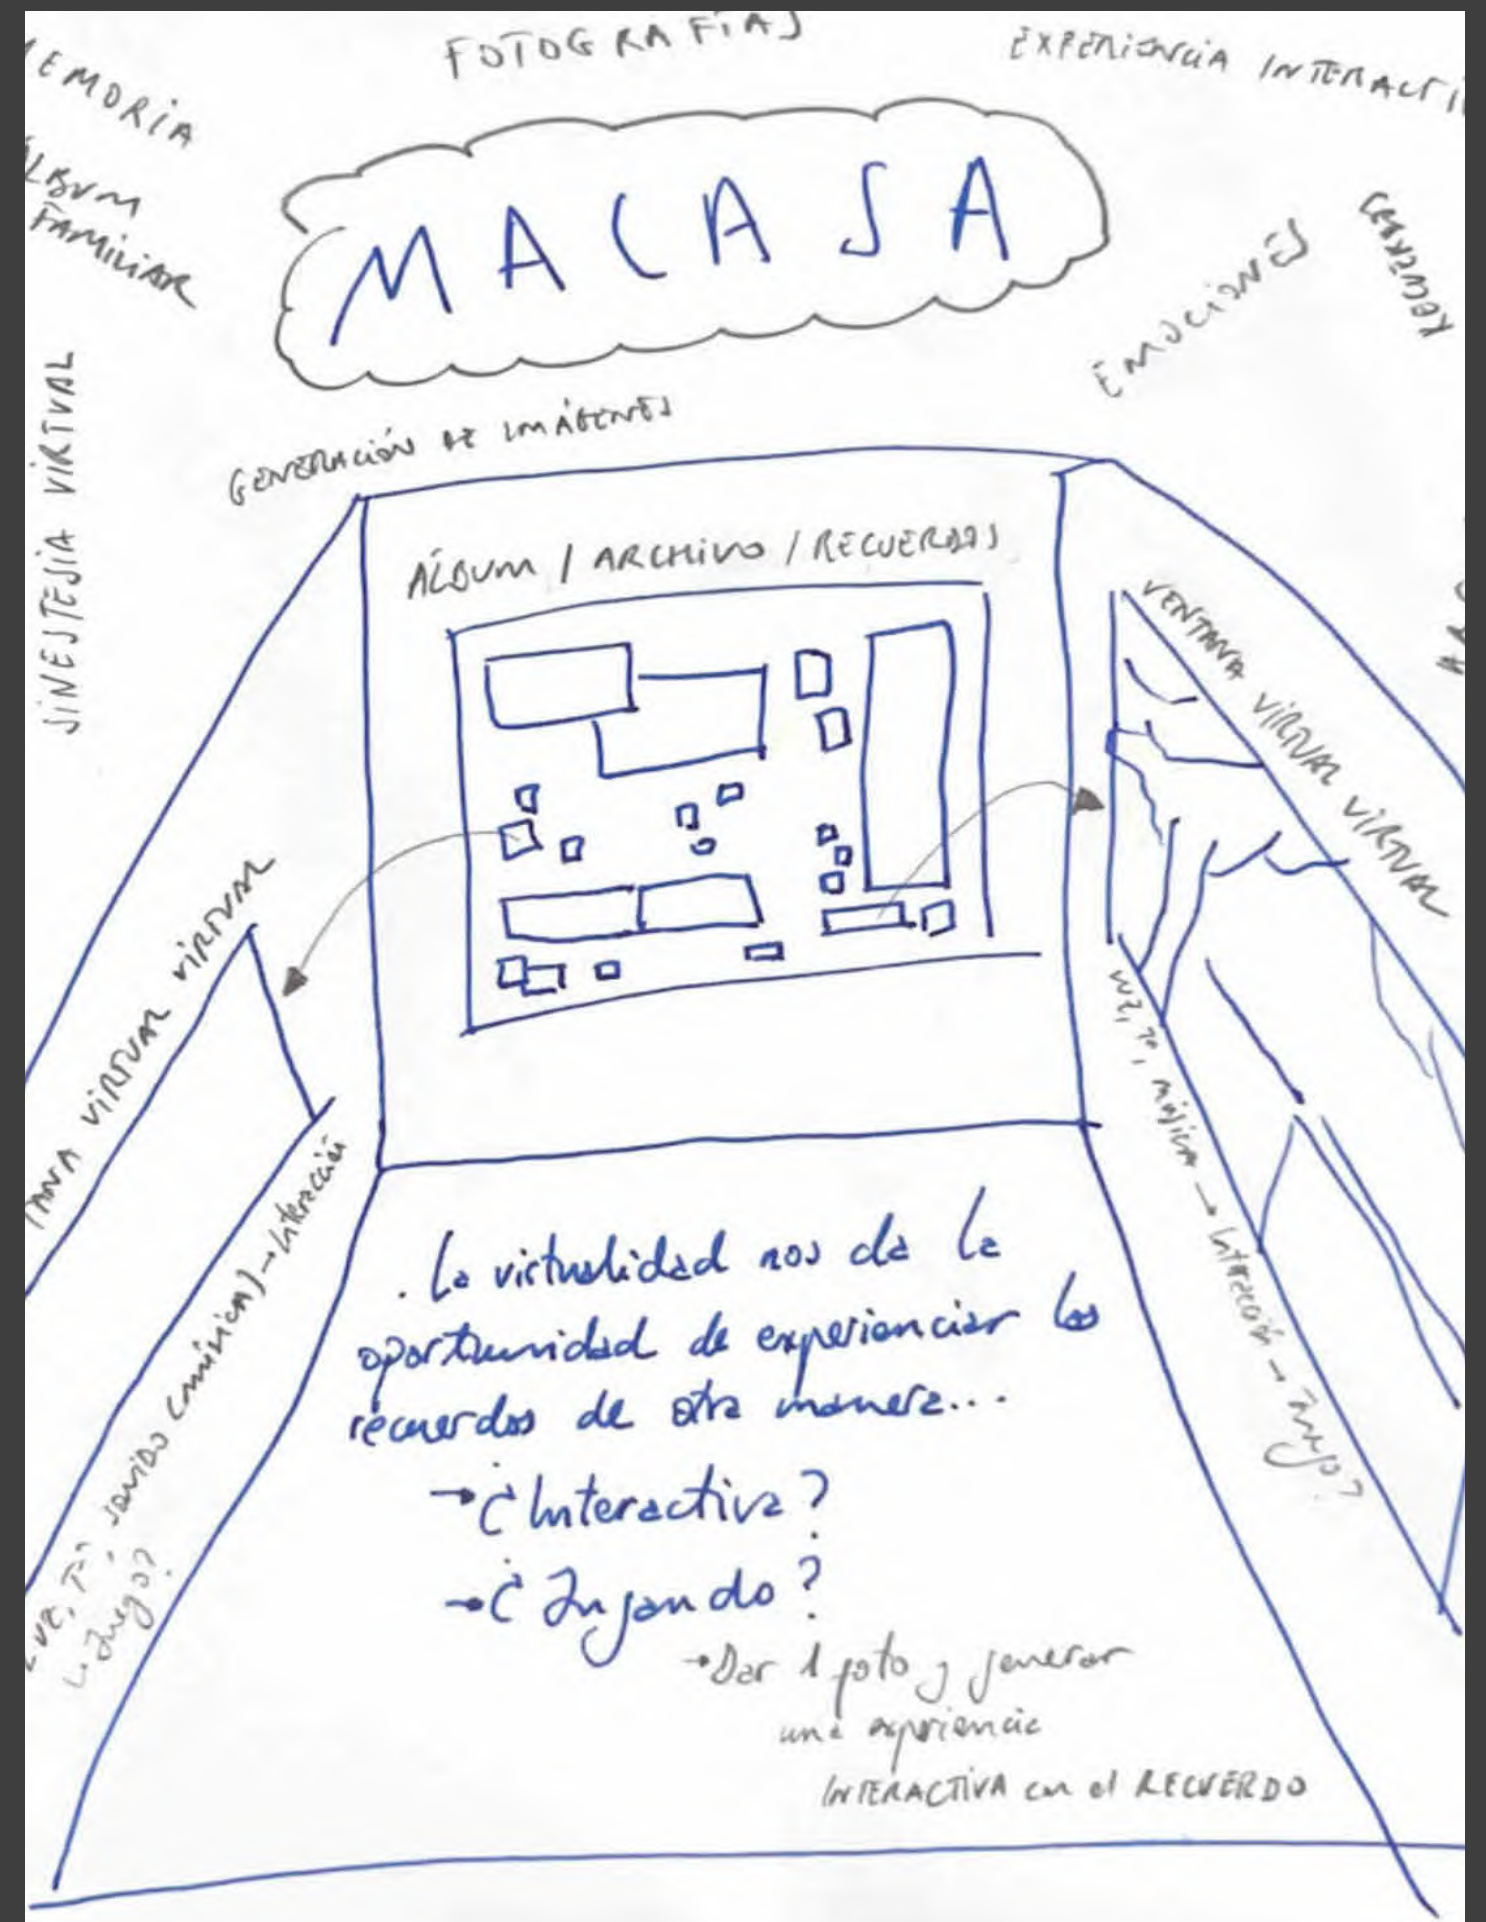 FOTOGRAFÍAS
EXPERIENCIA INTERACTI
EMORIA
ÁLBUM
FAMILIAR
MACASA
EMOCIONES
SINESTESIA VIRTUAL
GENERACIÓN DE IMÁGENES
ÁLBUM / ARCHIVO / RECUERDOS
VENTANA VIRTUAL VIRTUAL
TANA VIRTUAL VIRTUAL
sonido (música) → Interacción
Juego?
música → Interacción →
. La virtualidad nos da la
oportunidad de experienciar los
recuerdos de otra manera...
→ ¿Interactiva?
→ ¿Jugando?
→ Dar 1 foto y generar
una experiencia
INTERACTIVA con el RECUERDO